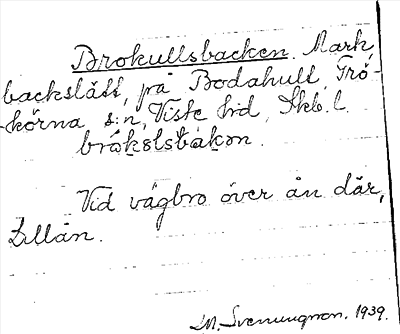 Brokullsbacken. Mark,
backslått, på Bodahult, Trö-
körna s:n, Viste hd, Skb. l.
brókəlsbàkən.
Vid vägbro över ån där,
Lillån.
M. Svenungson. 1939.